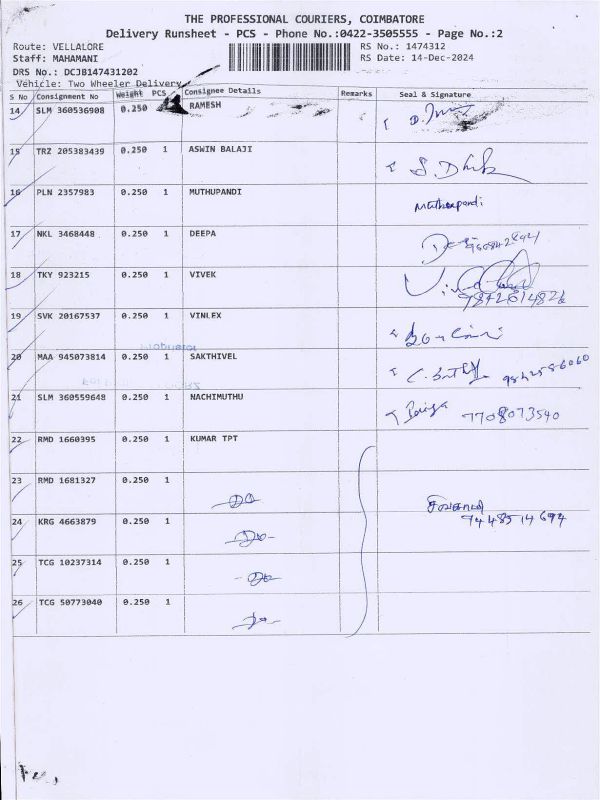 THE PROFESSIONAL COURIERS, COIMBATORE
Delivery Runsheet - PCS - Phone No.:0422-3505555 - Page No.:2
Route: VELLALORE RS No.: 1474312
Staff: MAHAMANI RS Date: 14-Dec-2024
DRS No.: DCJB147431202
Vehicle: Two Wheeler Delivery
S No Consignment No Weight PCS Consignee Details Remarks Seal & Signature
14 SLM 360536908 0.250 RAMESH
15 TRZ 205383439 0.250 1 ASWIN BALAJI
16 PLN 2357983 0.250 1 MUTHUPANDI Muthupandi
17 NKL 3468448 0.250 1 DEEPA
18 TKY 923215 0.250 1 VIVEK
19 SVK 20167537 0.250 1 VINLEX
20 MAA 945073814 0.250 1 SAKTHIVEL
21 SLM 360559648 0.250 1 NACHIMUTHU 7708073540
22 RMD 1660395 0.250 1 KUMAR TPT
23 RMD 1681327 0.250 1
24 KRG 4663879 0.250 1
25 TCG 10237314 0.250 1
26 TCG 50773040 0.250 1